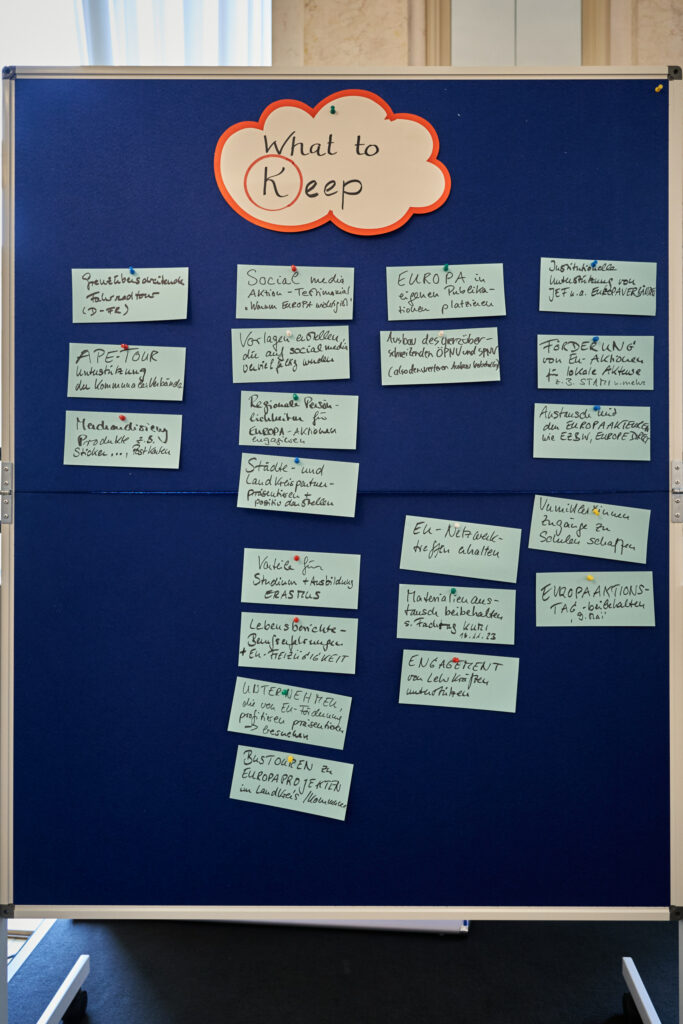 What to
Keep
Grenzüberschreitende
Fahrradtour
(D-FR)
APE-TOUR
Unterstützung
der Kommunen + Verbände
Merchandising
Produkte z.B.
Sticker..., Postkarten
Social media
Aktion - Testimonial
"Warum EUROPA wichtig ist"
Vorlagen erstellen
die auf social media
vervielfältigt werden
Regionale Persön-
lichkeiten für
EUROPA-AKTIONEN
engagieren
Städte- und
Landkreispartner-
präsentieren +
positiv darstellen
Vorteile für
Studium + Ausbildung
ERASMUS
Lebensberichte -
Berufserfahrungen
+ EU-FREIZÜGIGKEIT
UNTERNEHMEN,
die von EU-Förderung
profitieren präsentieren
→ besuchen
BUSTOUREN zu
EUROPAPROJEKTEN
im Landkreis / Kommunen
EUROPA in
eigenen Publika-
tionen platzieren
Ausbau des grenzüber-
schreitenden ÖPNV und SPNV
EU-Netzwerk-
treffen erhalten
Materialienaus-
tausch beibehalten
s. Fachtag KUMI
14.11.23
ENGAGEMENT
von Lehrkräften
unterstützen
Institutionelle
Unterstützung von
JEF u.a. EUROPAVERBÄNDE
FÖRDERUNG
von EU-Aktionen
für lokale Akteure
z.B. STAMI u. mehr
Austausch mit
den EUROPAAKTEUREN
wie EZBW, EUROPE DIRECT
Vermittler*innen
Zugänge zu
Schulen schaffen
EUROPAAKTIONS-
TAG - beibehalten
"9. Mai"